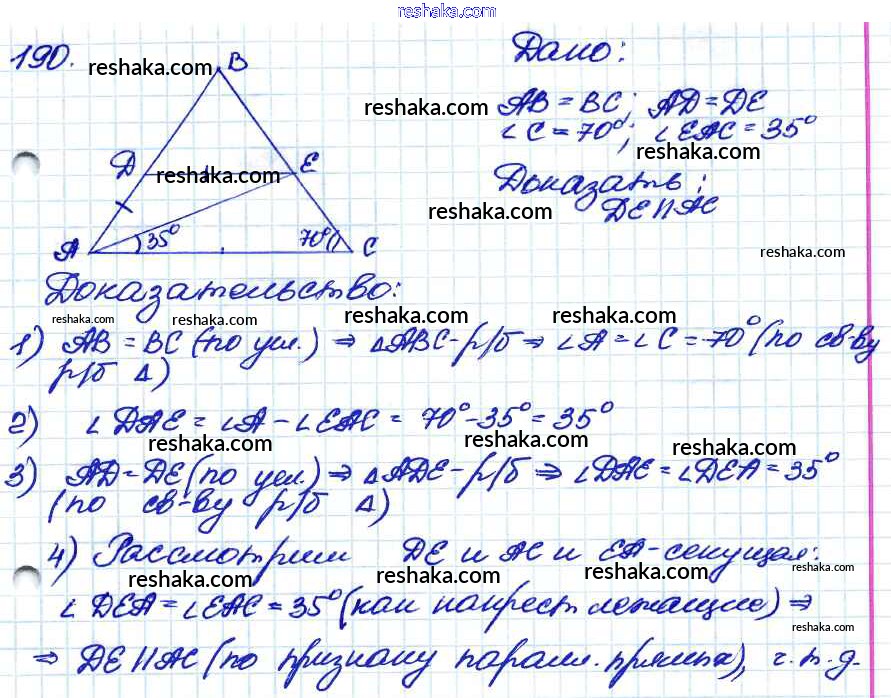 reshaka.com
190. reshaka.com B Дано:
reshaka.com AB = BC; AD = DE
∠C = 70°; ∠EAC = 35°
reshaka.com
D reshaka.com E Доказать:
reshaka.com DE || AC
A 35° 70° C reshaka.com
Доказательство:
reshaka.com reshaka.com reshaka.com reshaka.com
1) AB = BC (по усл.) ⇒ ΔABC - р/б ⇒ ∠A = ∠C = 70° (по св-ву
р/б Δ)
2) ∠DAE = ∠A - ∠EAC = 70° - 35° = 35°
reshaka.com reshaka.com reshaka.com
3) AD = DE (по усл.) ⇒ ΔADE - р/б ⇒ ∠DAE = ∠DEA = 35°
(по св-ву р/б Δ)
4) Рассмотрим DE и AC и EA - секущая:
reshaka.com reshaka.com reshaka.com reshaka.com
∠DEA = ∠EAC = 35° (как накрест лежащие) ⇒
reshaka.com
⇒ DE || AC (по признаку паралл. прямых), ч.т.д.